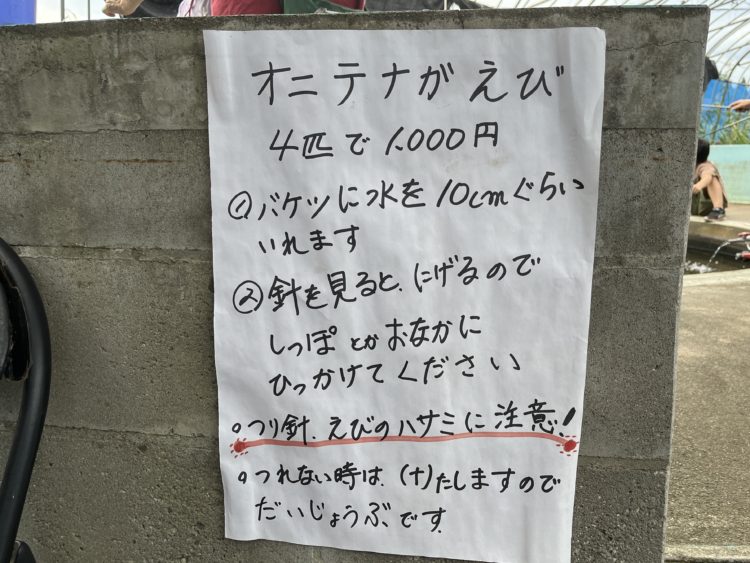 オニテナがえび
4匹で1,000円
①バケツに水を10cmぐらい
いれます
②針を見ると、にげるので
しっぽとかおなかに
ひっかけてください
。つり針、えびのハサミに注意!
。つれない時は、(+)たしますので
だいじょうぶです。